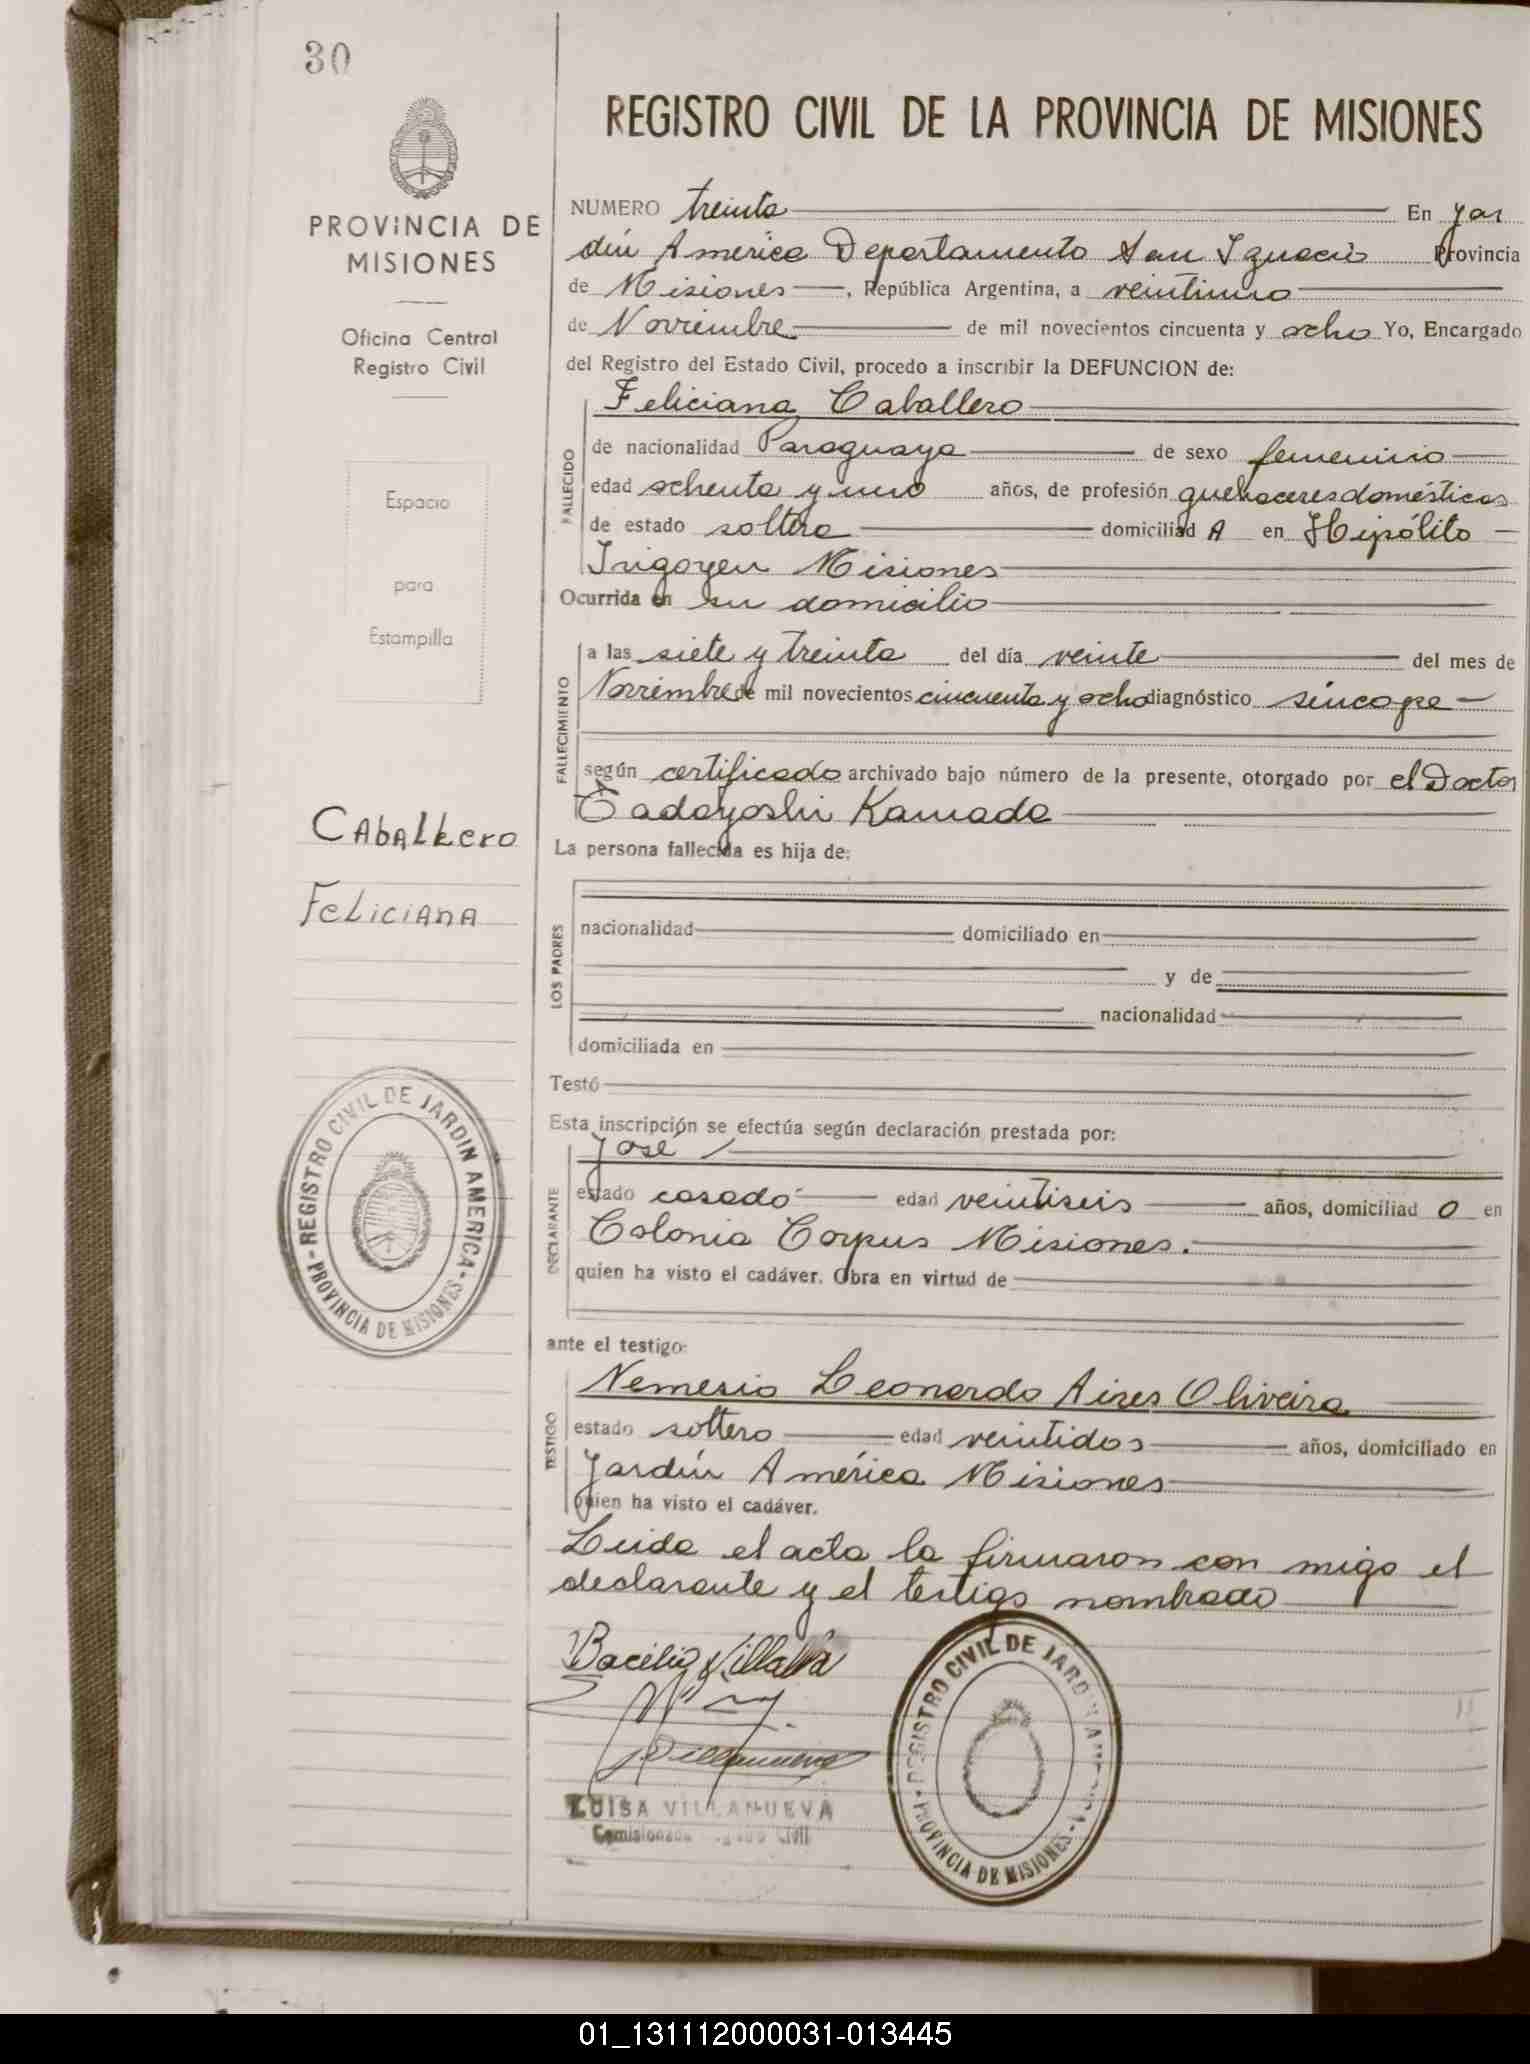 30
PROVINCIA DE
MISIONES
Oficina Central
Registro Civil
Espacio
para
Estampilla
CAbALLero
FeLiciAnA
REGISTRO CIVIL DE JARDIN AMERICA
PROVINCIA DE MISIONES
REGISTRO CIVIL DE LA PROVINCIA DE MISIONES
NUMERO treinta En Jar
dín America Departamento San Ignacio Provincia
de Misiones, República Argentina, a veintiuno
de Noviembre de mil novecientos cincuenta y ocho Yo, Encargado
del Registro del Estado Civil, procedo a inscribir la DEFUNCION de:
FALLECIDO
Feliciana Caballero
de nacionalidad Paraguaya de sexo femenino
edad ochenta y uno años, de profesión quehaceres domésticos
de estado soltera domiciliad A en Hipólito
Irigoyen Misiones
Ocurrida en su domicilio
FALLECIMIENTO
a las siete y treinta del día veinte del mes de
Noviembre de mil novecientos cincuenta y ocho diagnóstico síncope
según certificado archivado bajo número de la presente, otorgado por el Doctor
Tadayoshi Kamada
La persona fallecida es hija de:
LOS PADRES
nacionalidad domiciliado en
y de
nacionalidad
domiciliada en
Testó
Esta inscripción se efectúa según declaración prestada por:
DECLARANTE
José
estado casado edad veintiseis años, domiciliad o en
Colonia Corpus Misiones.
quien ha visto el cadáver. Obra en virtud de
ante el testigo:
TESTIGO
Nemesio Leonardo Aires Oliveira
estado soltero edad veintidos años, domiciliado en
Jardín América Misiones
quien ha visto el cadáver.
Leida el acta la firmaron con migo el
declarante y el testigo nombrado
Bacilio Villalba
Villanueva
LUISA VILLANUEVA
Civil
REGISTRO CIVIL DE JARDIN
PROVINCIA DE MISIONES
01_131112000031-013445